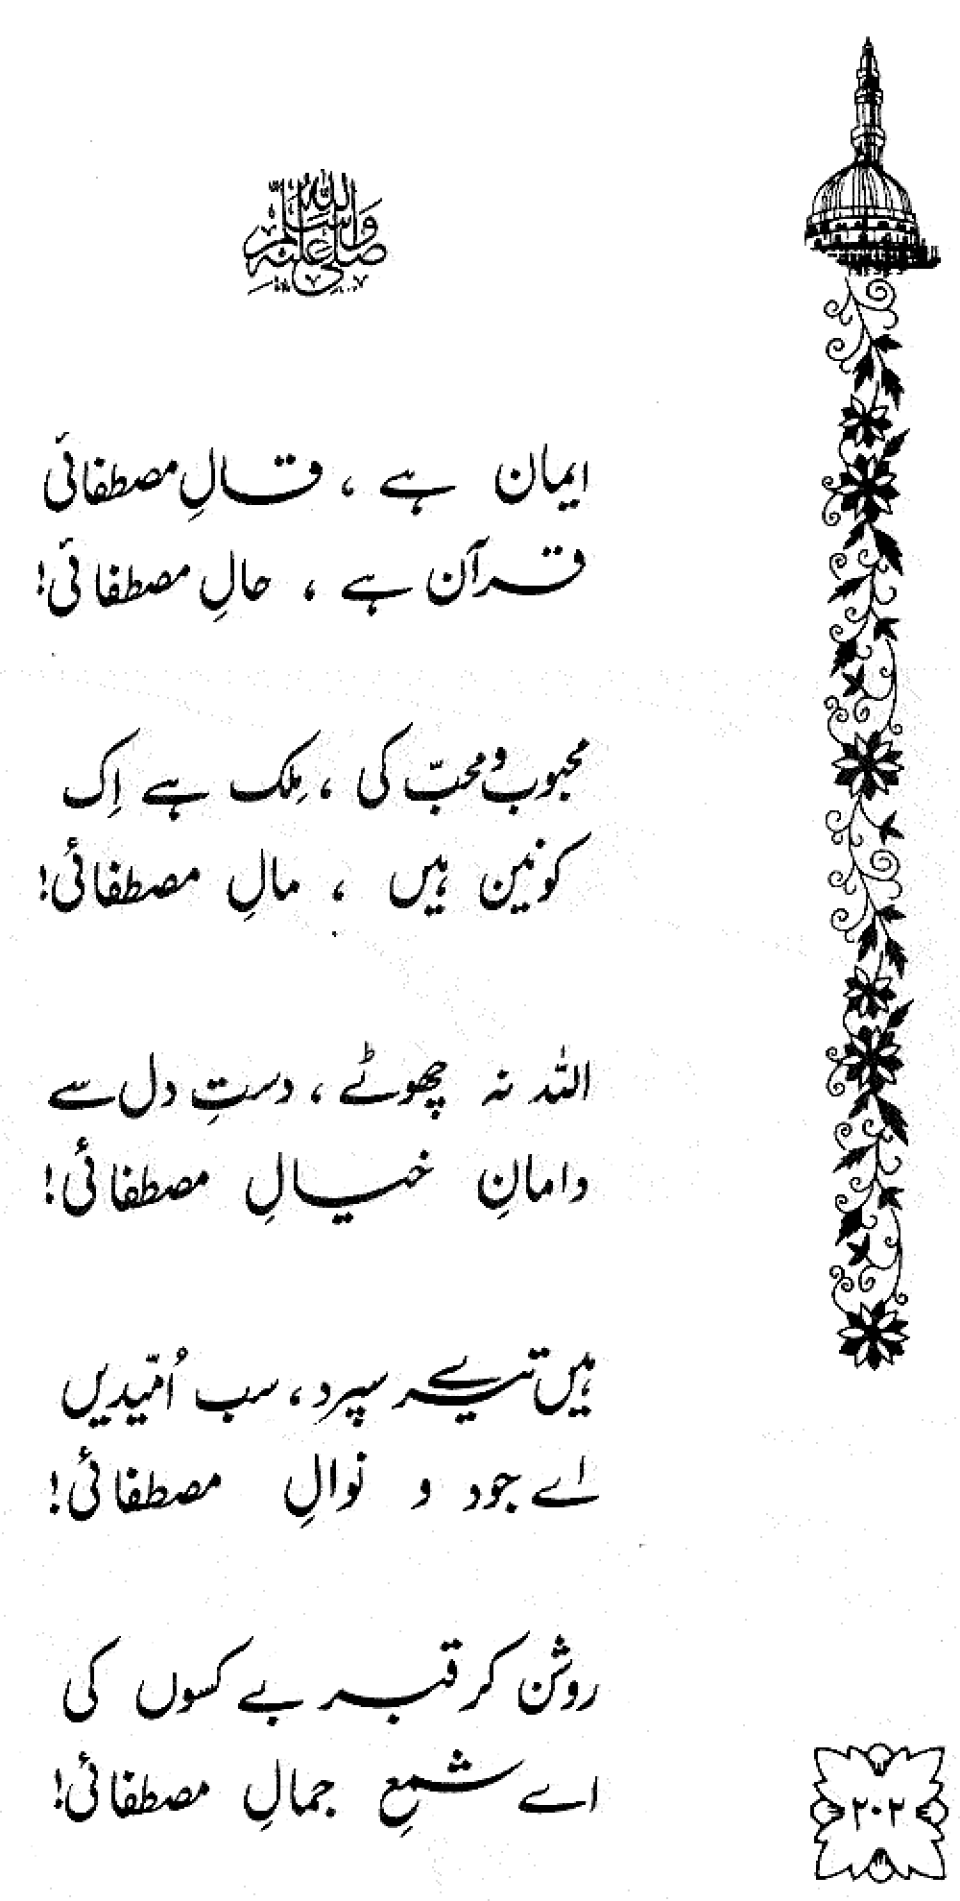 صلی اللہ علیہ وسلم
ایمان ہے ، قالِ مصطفائی
قرآن ہے ، حالِ مصطفائی!
محبوب و محبّ کی ، مِلک ہے اِک
کونین ہیں ، مالِ مصطفائی!
اللہ نہ چھوٹے ، دستِ دل سے
دامانِ خیالِ مصطفائی!
ہیں تیرے سپرد ، سب اُمّیدیں
اے جود و نوالِ مصطفائی!
روشن کر قبر بے کسوں کی
اے شمعِ جمالِ مصطفائی!
۲۰۲